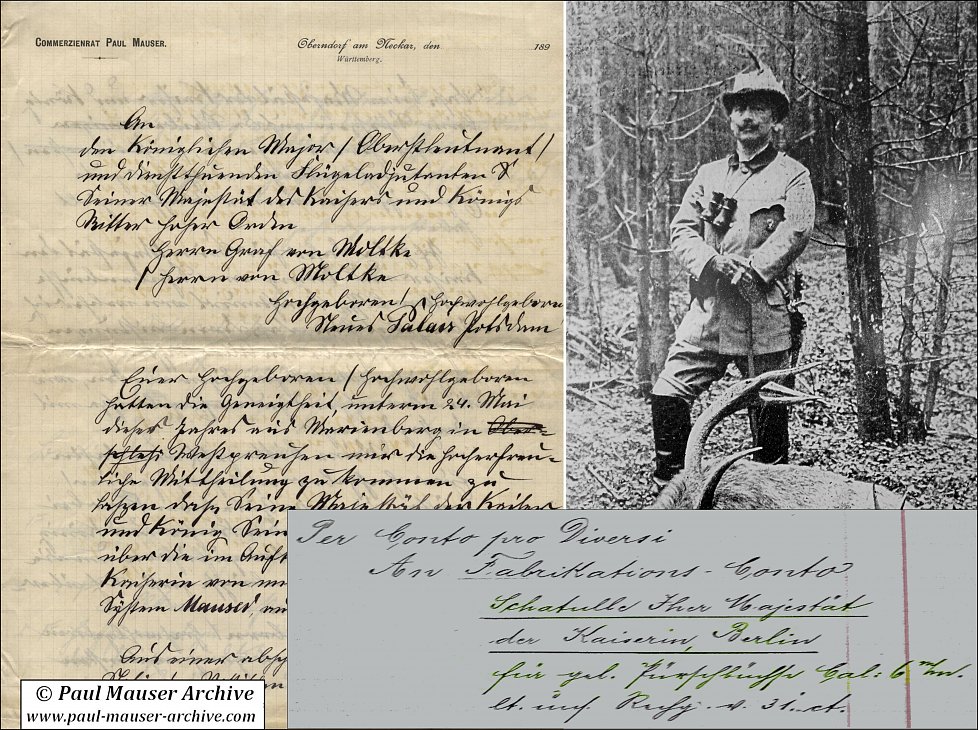 COMMERZIENRAT PAUL MAUSER.
Oberndorf am Neckar, den 189
Württemberg.
An
den Königlichen Major / Oberstleutnant /
und diensttuenden Flügeladjutanten
Seiner Majestät des Kaisers und Königs
Ritter hoher Orden
Herrn Graf von Moltke
/ Herrn von Moltke
Hochgeboren / Hochwohlgeboren
Neues Palais Potsdam
Euer Hochgeboren / Hochwohlgeboren
hatten die Geneigtheit, unterm 24. Mai
dieses Jahres aus Marienberg in
Westpreußen mir die hocherfreu-
liche Mittheilung zu kommen zu
lassen dass Seine Majestät der Kaiser
und König Sein
über die im Auft
Kaiserin von
System Mauser,
Aus einer
Per Conto pro Diversi
An Fabrikations-Conto
Schatulle Ihrer Majestät
der Kaiserin, Berlin
für gel. Pürschbüchse Cal: 6 m/m.
lt. uns. Rechg. v. 31. ct.
© Paul Mauser Archive
www.paul-mauser-archive.com